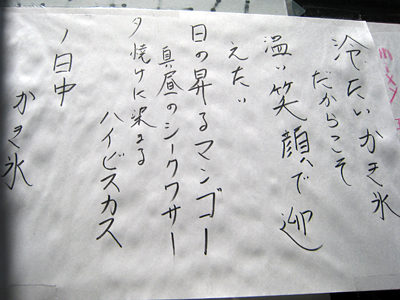 冷たいかき氷
だからこそ
温い笑顔で迎
えたい
日の昇るマンゴー
真昼のシークワサー
夕焼けに染まる
ハイビスカス
一日中
かき氷